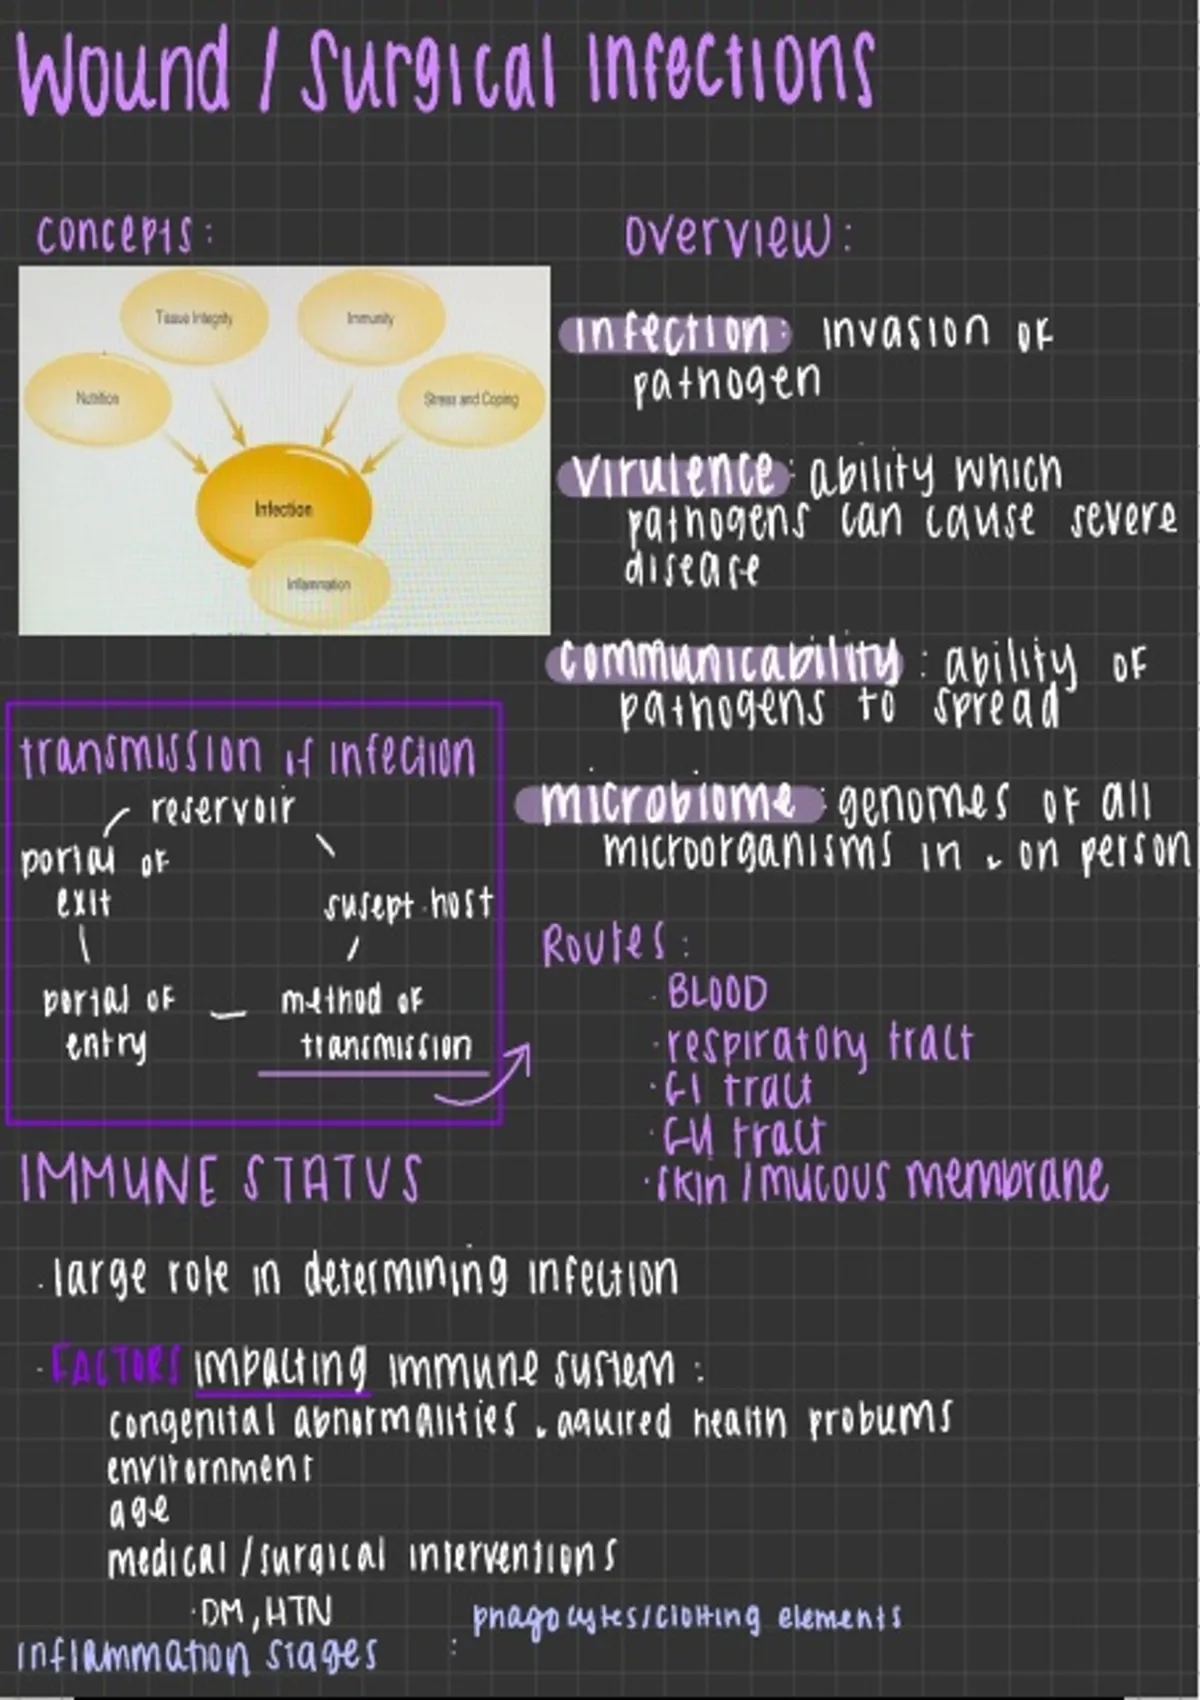 Wound / Surgical Infections
concepts:
Tissue Integrity
Immunity
Nutrition
Stress and Coping
Infection
Inflammation
overview:
infection: invasion of
pathogen
virulence: ability which
pathogens can cause severe
disease
communicability: ability of
pathogens to spread
microbiome: genomes of all
microorganisms in & on person
transmission if infection
reservoir
portal of
exit
susept. host
portal of
entry
method of
transmission
Routes:
· BLOOD
· respiratory tract
· GI tract
· GU tract
· skin / mucous membrane
IMMUNE STATUS
· large role in determining infection
· FACTORS impacting immune system:
congenital abnormalities & aquired health problems
envirornment
age
medical / surgical interventions
· DM, HTN
phagocytes/clotting elements
inflammation stages :